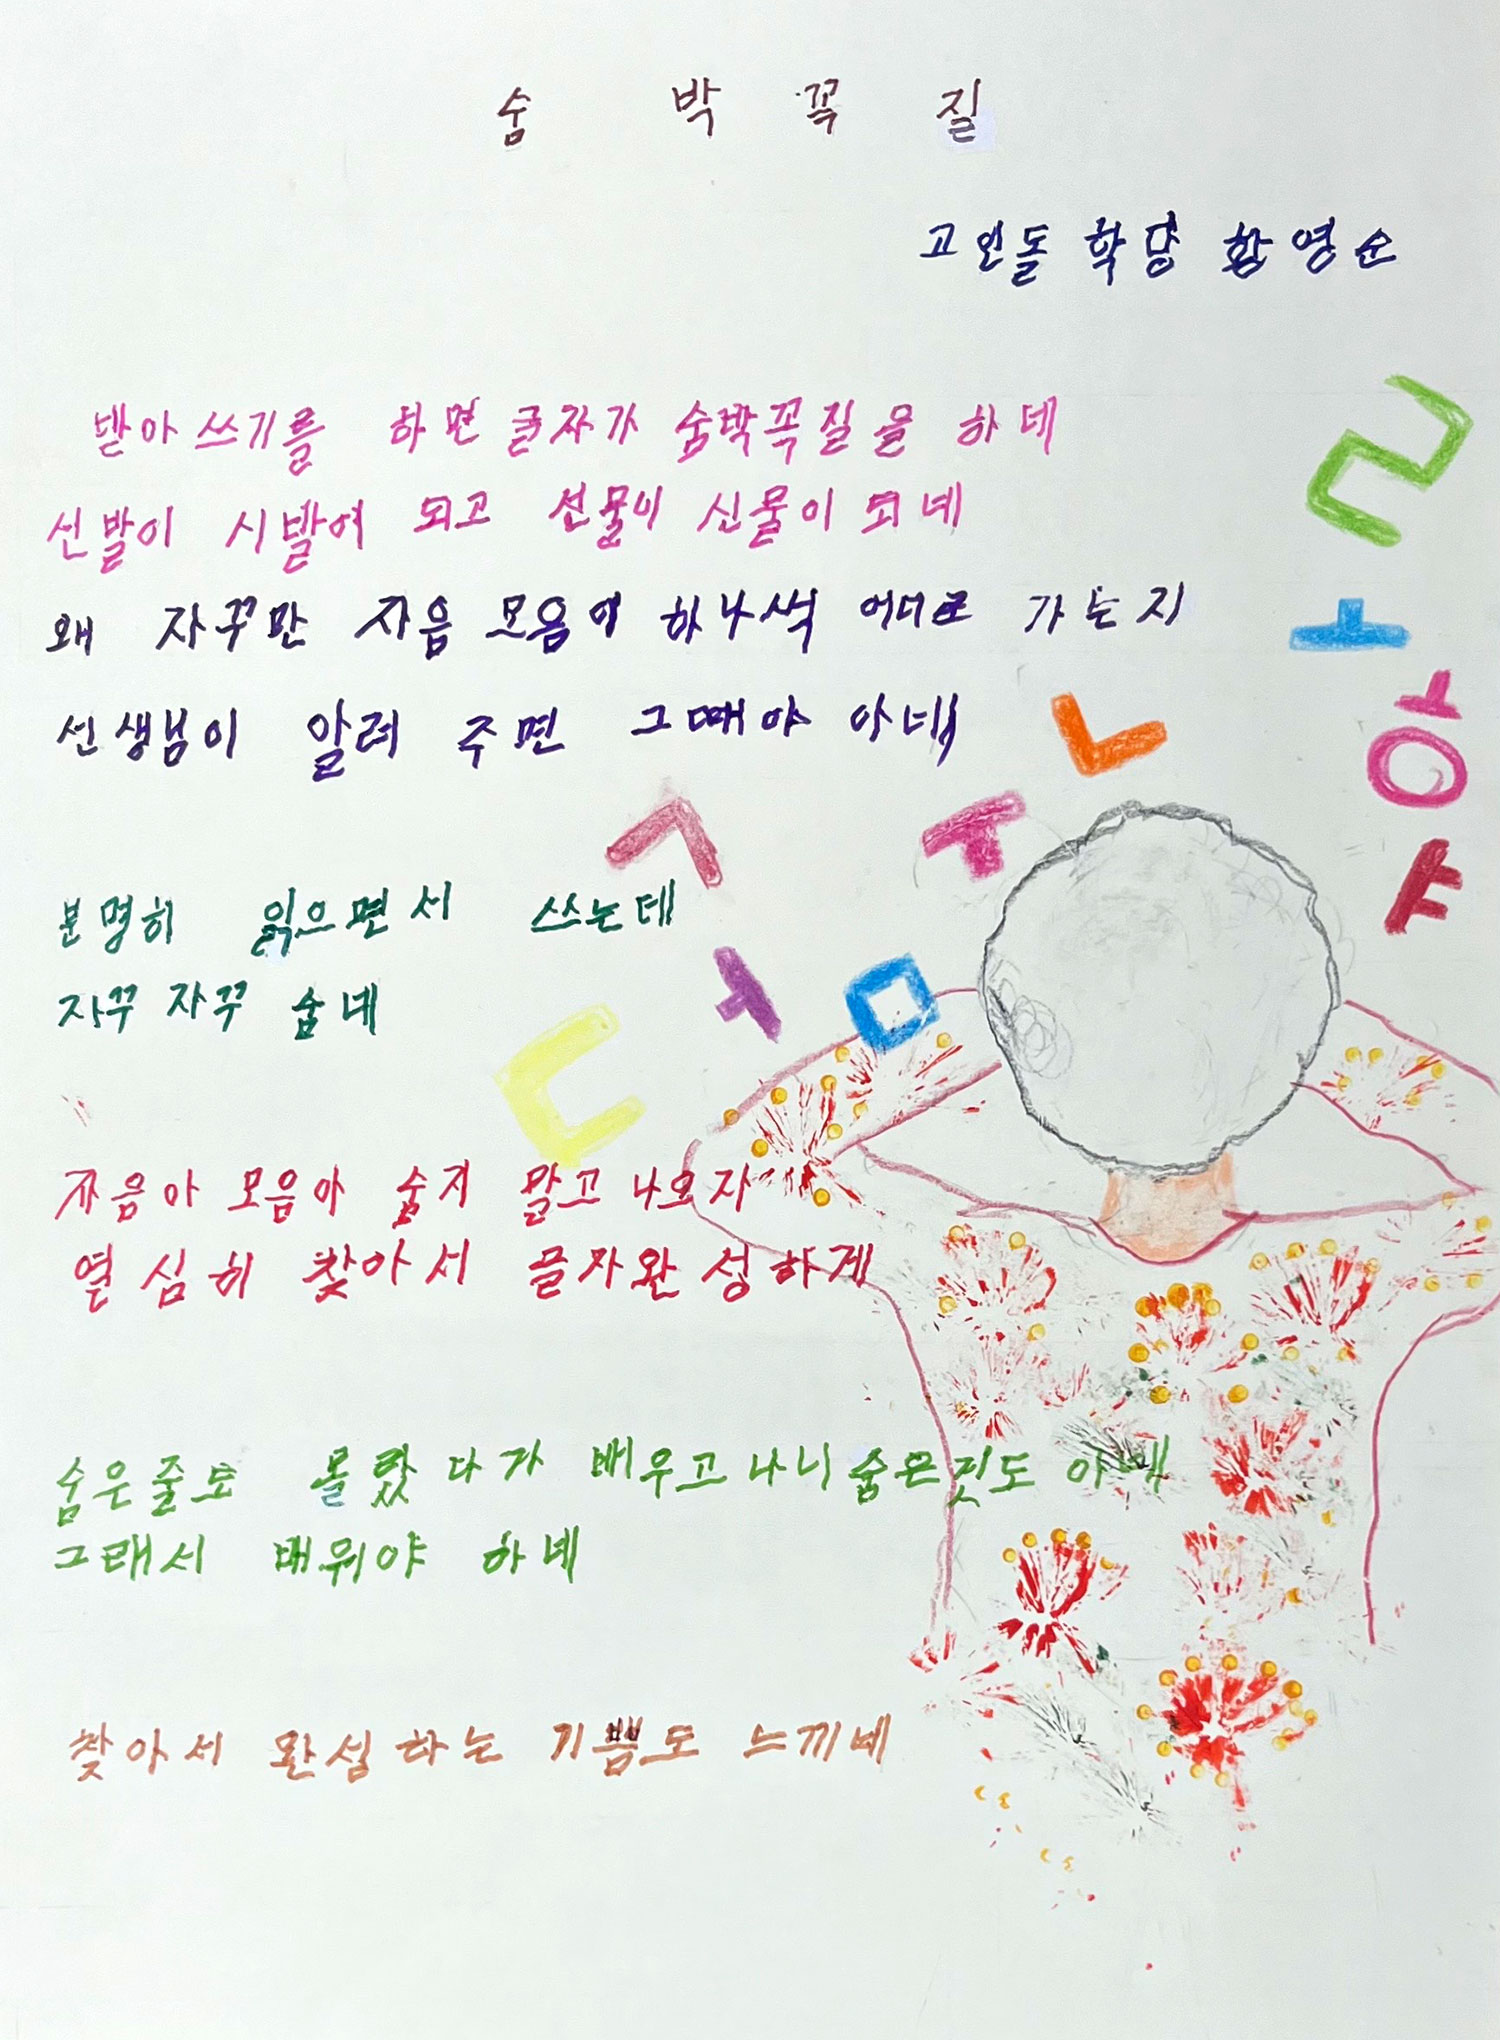 숨박꼭질
고인돌 학당 황영순
받아쓰기를 하면 글자가 숨박꼭질을 하데
신발이 시발이 되고 선물이 신물이 되네
왜 자꾸만 자음 모음이 하나씩 어디로 가는지
선생님이 알려 주면 그때야 아네
분명히 읽으면서 쓰는데
자꾸 자꾸 숨네
자음아 모음아 숨지 말고 나오자
열심히 찾아서 글자완성하게
숨은줄도 몰랐다가 배우고나니 숨은것도 아네
그래서 배워야 하네
찾아서 완성하는 기쁨도 느끼네
ㄹ
ㅗ
ㅎ
ㄴ
ㅅ
ㅜ
ㅑ
ㅗ
ㅁ
ㄷ